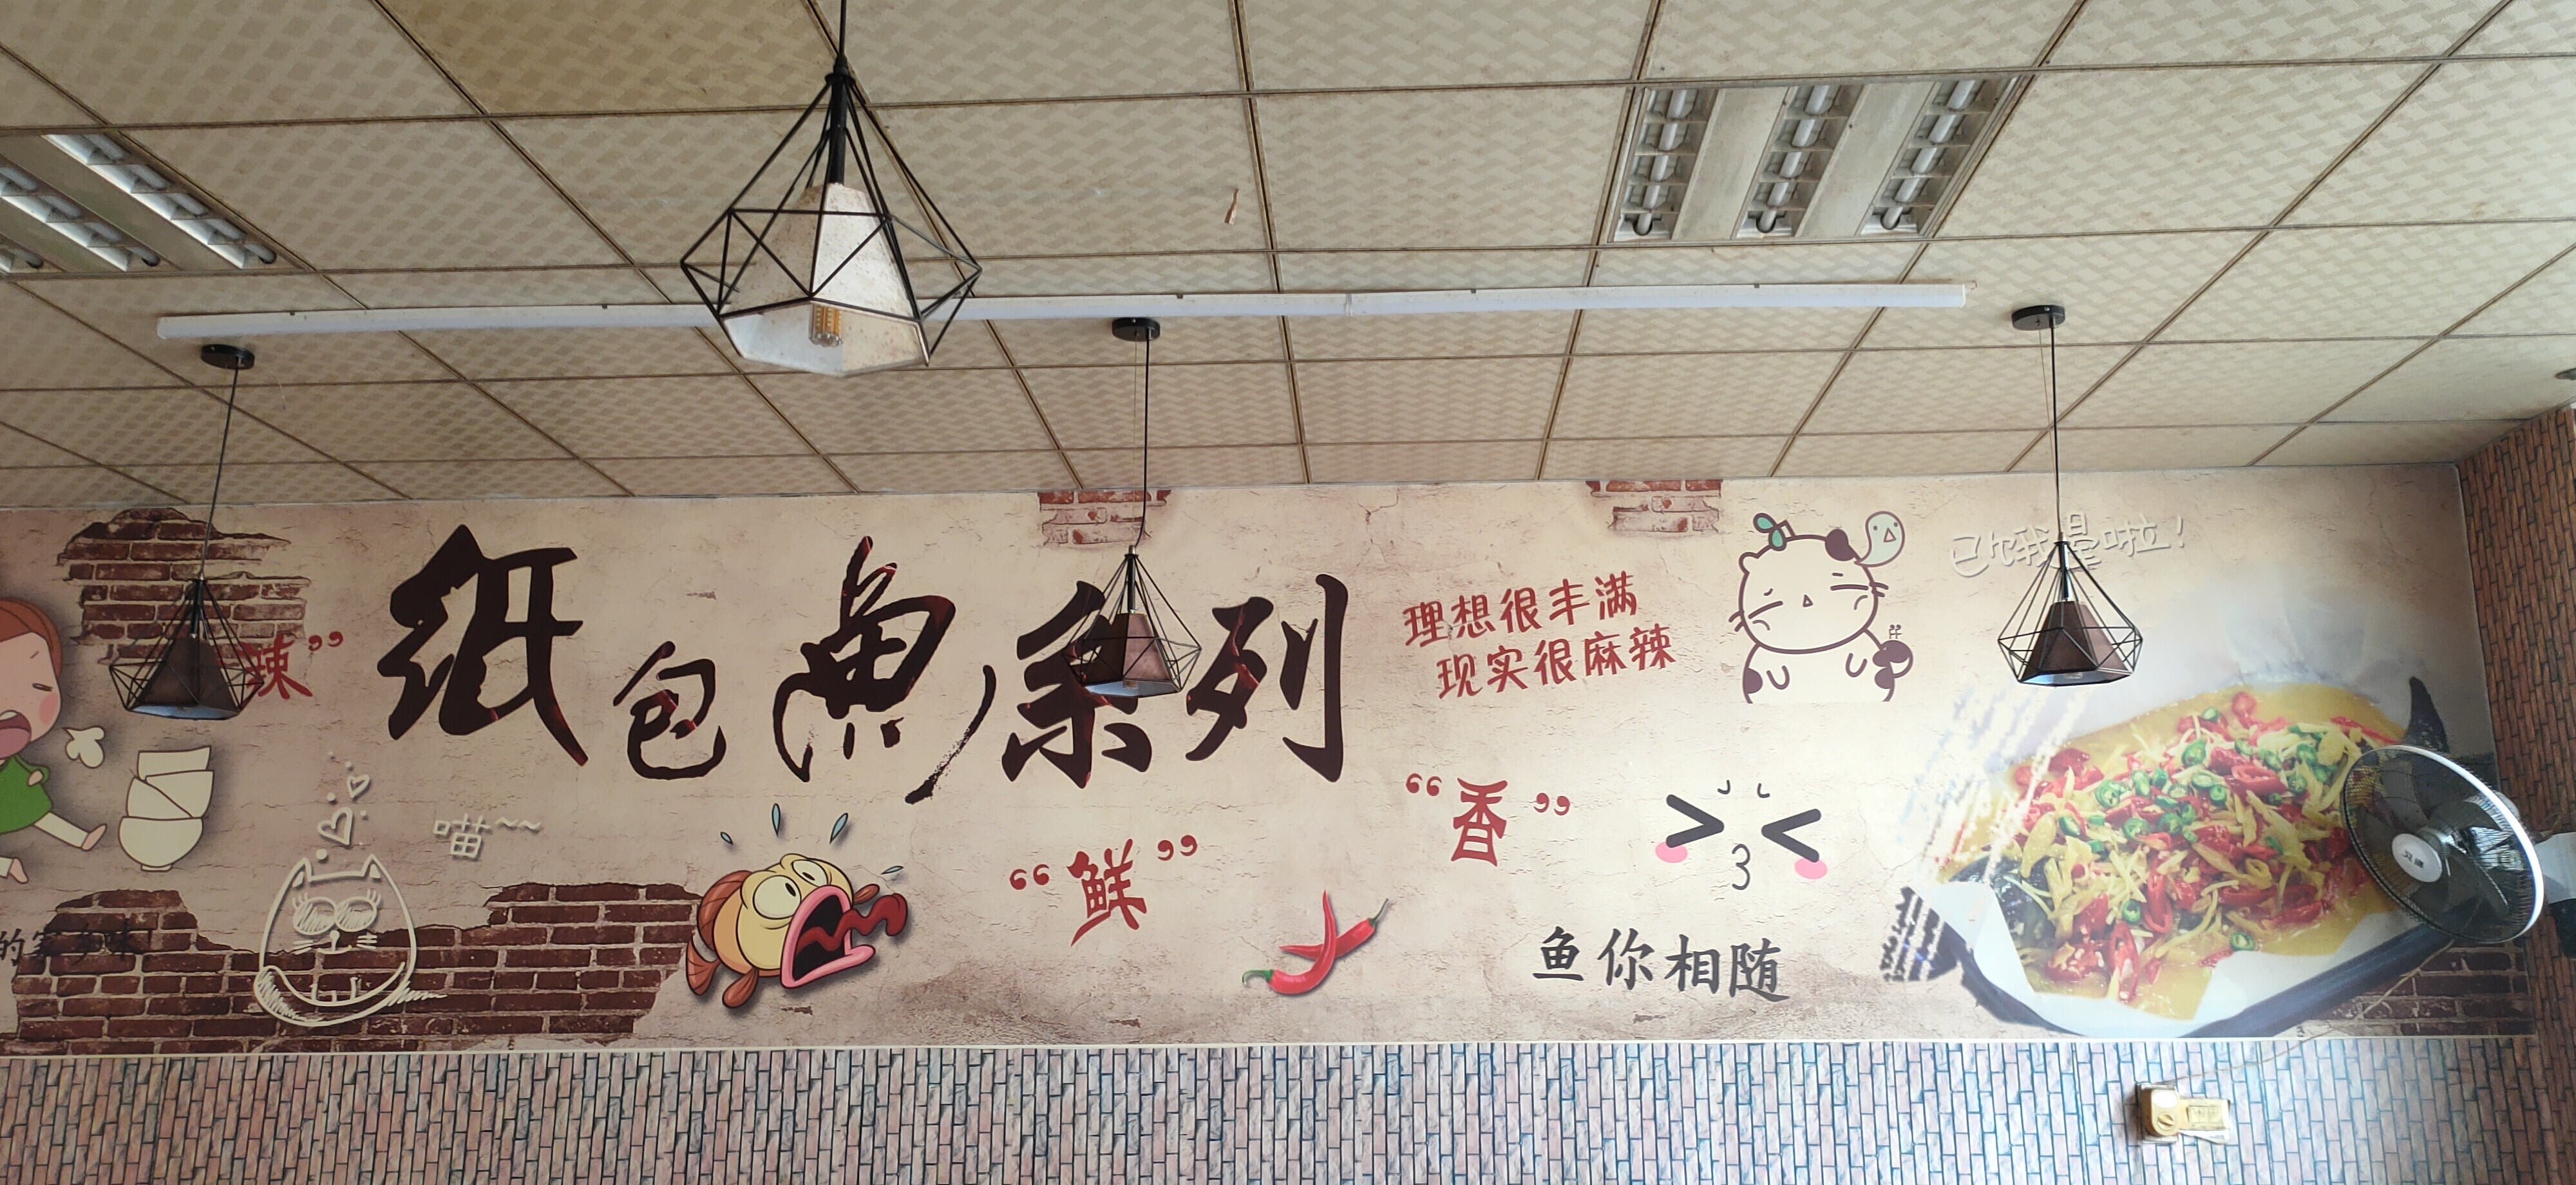 辣”
纸包鱼系列
理想很丰满
现实很麻辣
喵~~
“鲜”
“香”
鱼你相随
的家乡味